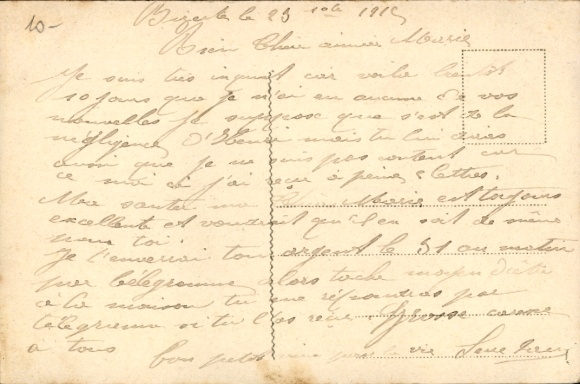 10-
Bizerte le 23 1916
Bien Chère aimée Marie
Je suis très inquiet car voilà bientôt
10 jours que je n'ai eu aucune de vos
nouvelles je suppose que c'est de la
négligence d'Henri mais tu lui diras
aussi que je ne suis pas content car
ce moi ci j'ai reçu à peine 2 lettres.
Ma santé ma Marie est toujours
excellente et voudrait qu'il en soit de même
pour toi.
Je t'enverrai ton argent le 31 au matin
par télégramme alors tache moyen d'être
à la maison tu me répondras par
télégramme si tu l'as reçu. Grosse caresse
a tous
bon petit pour la vie